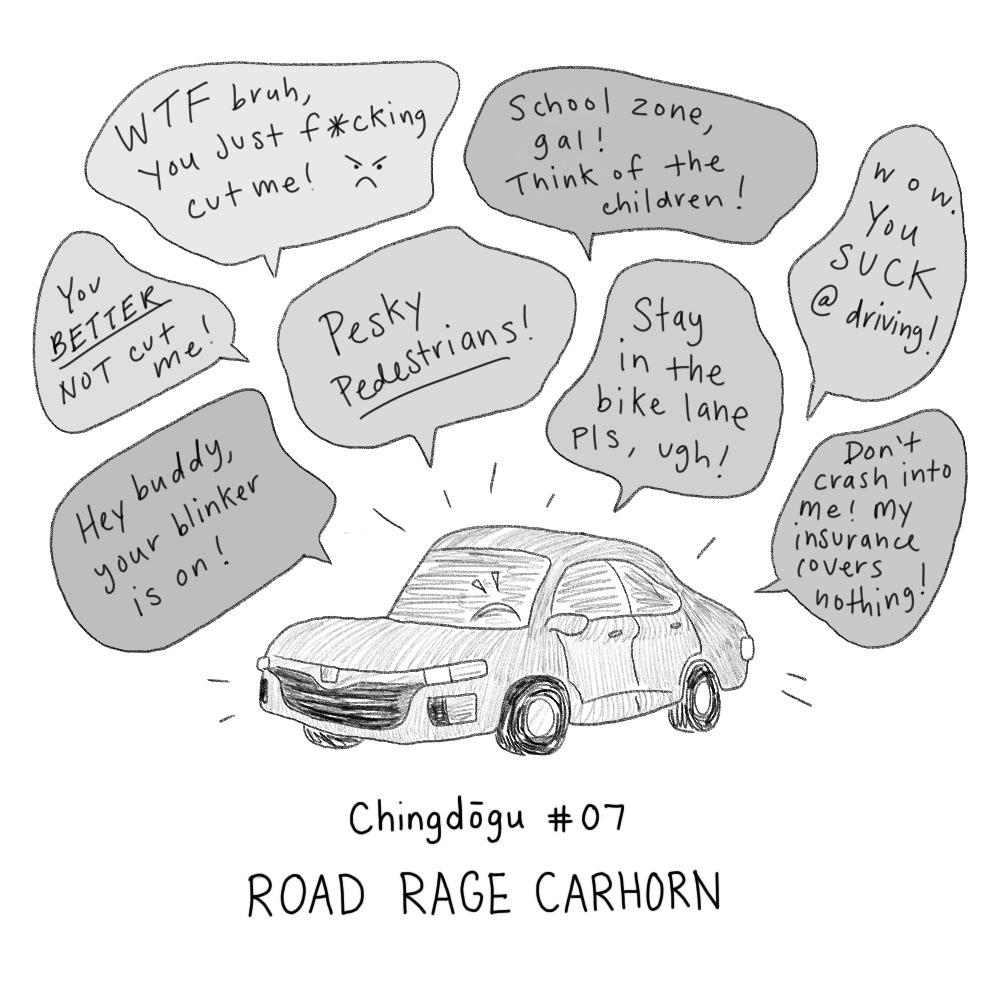 WTF bruh,
you just f*cking
cut me!
School zone,
gal!
Think of the
children!
wow.
You
SUCK
@ driving!
You
BETTER
NOT cut
me!
Pesky
Pedestrians!
Stay
in the
bike lane
pls, ugh!
Hey buddy,
your blinker
is on!
Don't
crash into
me! My
insurance
covers
nothing!
Chingdōgu #07
ROAD RAGE CARHORN